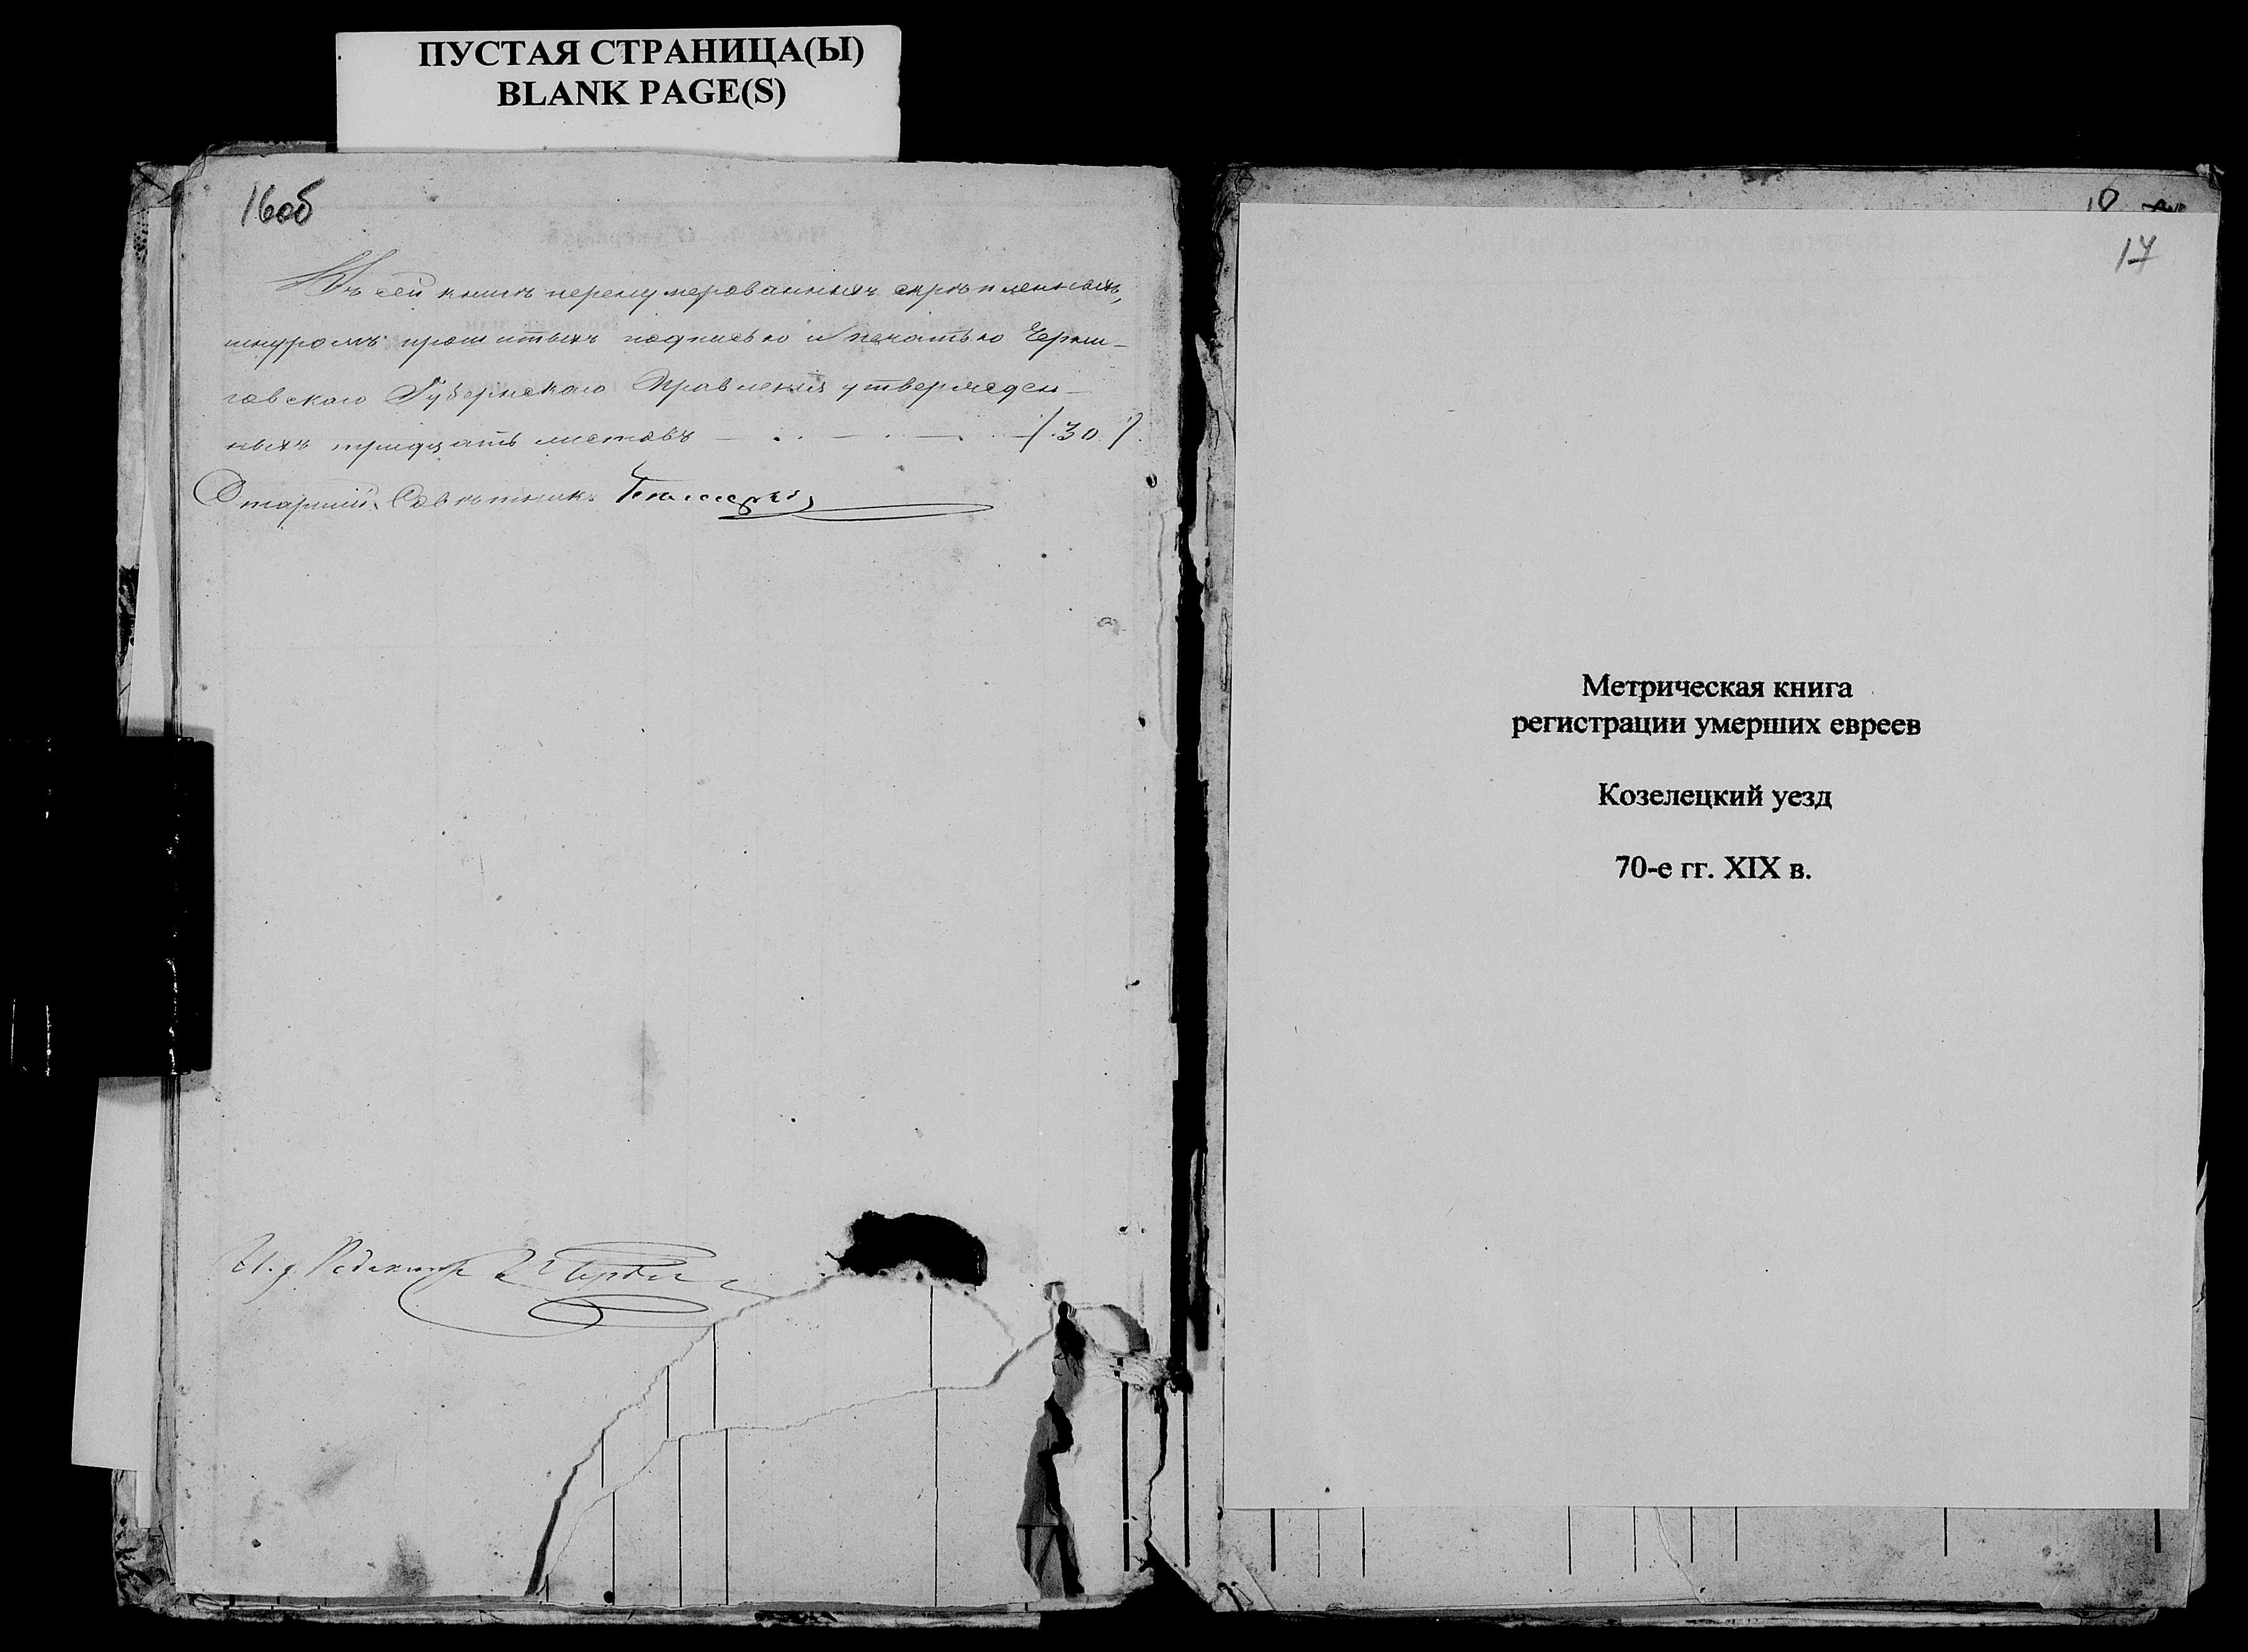 ПУСТАЯ СТРАНИЦА(Ы)
BLANK PAGE(S)
16об
Въ сей книгѣ перенумерованныхъ скрѣпленныхъ,
шнуромъ прошитыхъ подписью и печатью Черни-
говскаго Губернскаго Правленія утвержден-
ныхъ тридцать листовъ — . — . — . — /.30./.
Старшій Совѣтникъ
И. д.
17
Метрическая книга
регистрации умерших евреев
Козелецкий уезд
70-е гг. XIX в.